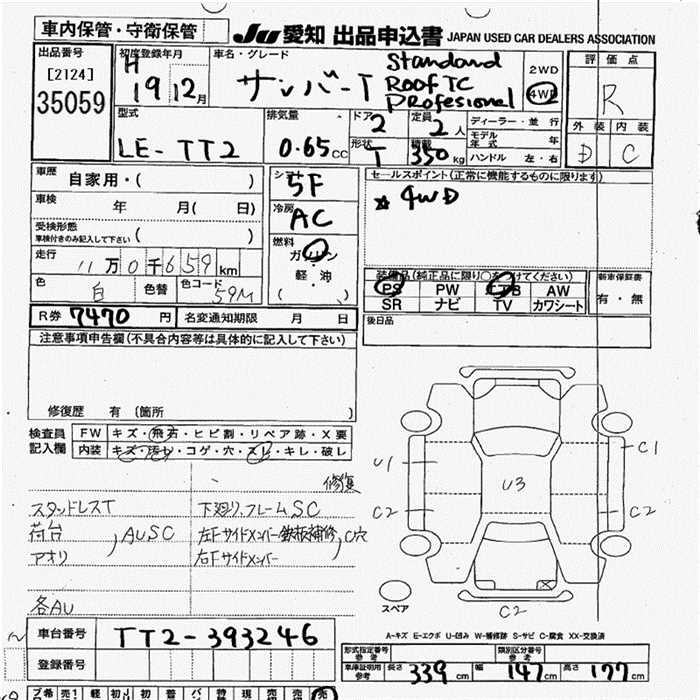 車内保管・守衛保管
JU 愛知 出品申込書 JAPAN USED CAR DEALERS ASSOCIATION
出品番号
[2124]
35059
初度登録年月
H 19 12月
車名・グレード
サンバーT Standard
Roof TC
Professional
2WD
4WD
評価点
R
外装 内装
D C
型式
LE-TT2
排気量
0.65cc
ドア
2
定員
2人
形状
T
積載
350kg
ディーラー・並行
モデル年式 年
ハンドル 左・右
車歴
自家用・( )
車検
年 月( 日)
受検形態
車検付きのみ記入して下さい ( )
走行
11万0千659km
色
白
色替
色コード
59M
シフト
5F
冷房
AC
燃料
ガソリン
軽・油
セールスポイント(正常に機能するものに限ります)
☆ 4WD
装備品(純正品に限り○を付けてください)
PS PW エアB AW
SR ナビ TV カワシート
新車保証書
有・無
後日品
R券 7470 円 名変通知期限 月 日
注意事項申告欄(不具合内容等は具体的に記入して下さい)
修復歴 有 (箇所 )
検査員
記入欄
FW キズ・飛石・ヒビ割・リペア跡・X要
内装 キズ・汚れ・コゲ・穴・スレ・キレ・破レ
修復
スタッドレスT 下廻り、フレームSC
荷台 , AUSC 左Fサイドメンバー鉄板補修, C穴
アオリ 右Fサイドメンバー
各AU
U1
C2
U3
C1
C2
C2
スペア
A-キズ E-エクボ U-凹み W-補修跡 S-サビ C-腐食 XX-交換済
車台番号 TT2-393246
登録番号
形式指定番号
参考
類別区分番号
参考
車庫証明用
参考
長さ 339cm 幅 147cm 高さ 177cm